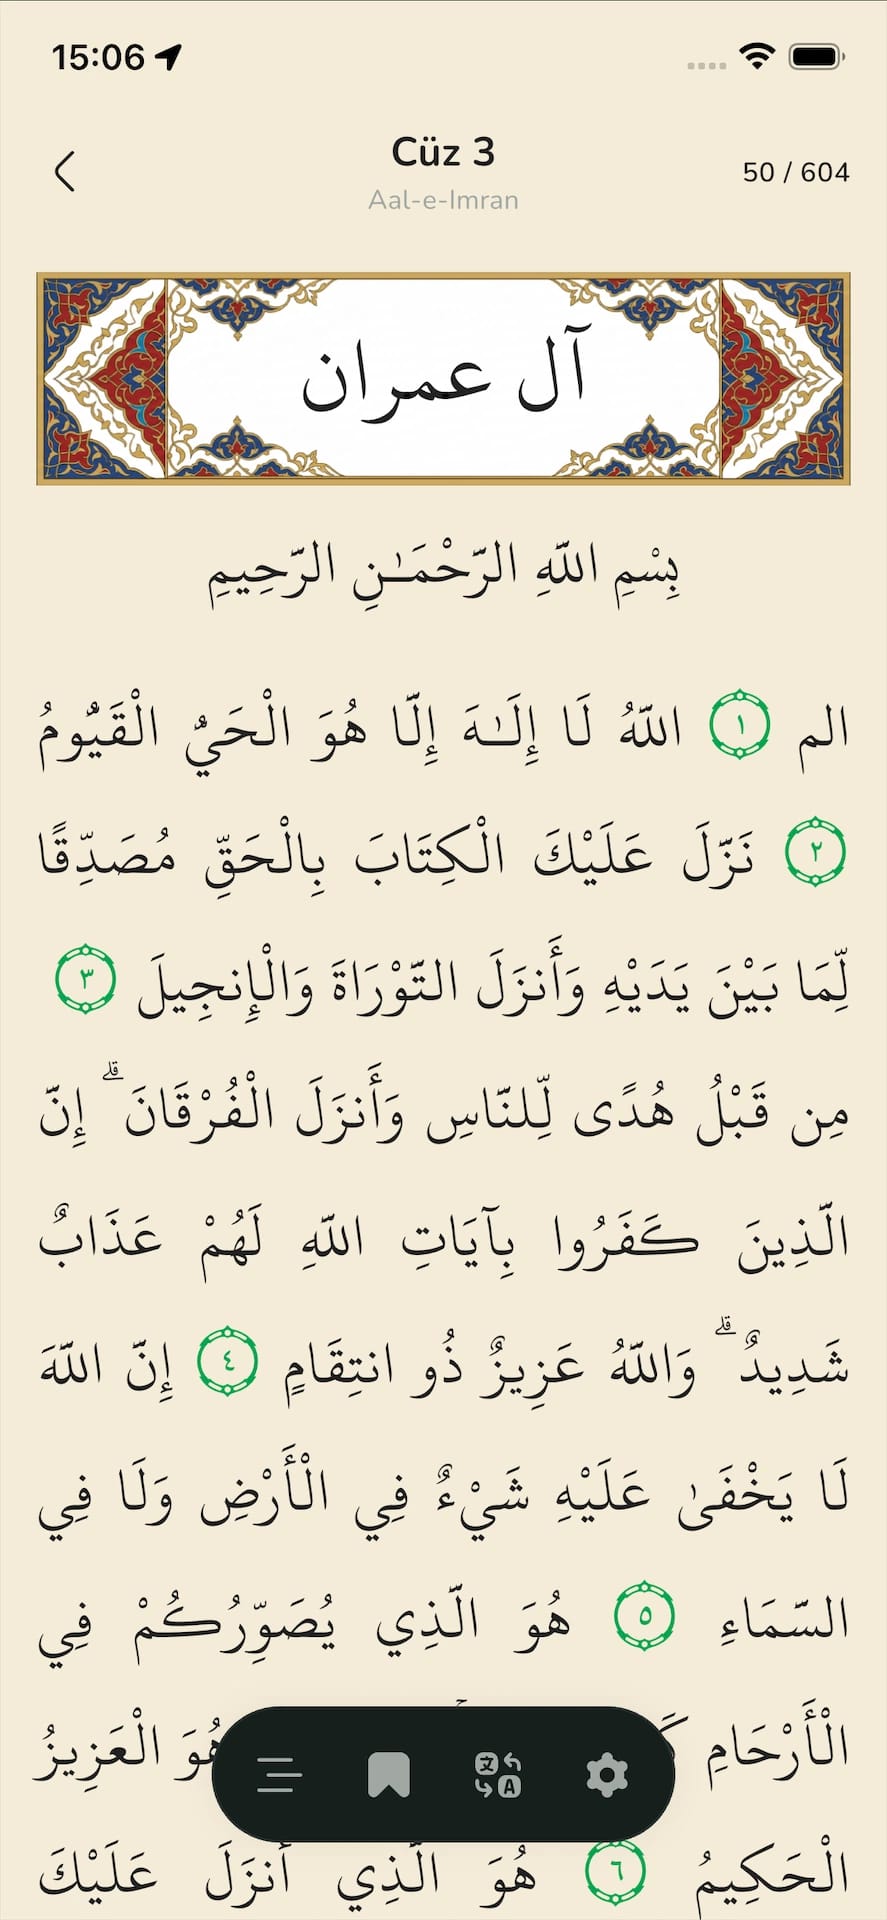 15:06
Cüz 3
50 / 604
Aal-e-Imran
آل عمران
بِسْمِ اللَّهِ الرَّحْمَـٰنِ الرَّحِيمِ
الم ١ اللَّهُ لَا إِلَـٰهَ إِلَّا هُوَ الْحَيُّ الْقَيُّومُ
٢ نَزَّلَ عَلَيْكَ الْكِتَابَ بِالْحَقِّ مُصَدِّقًا
لِّمَا بَيْنَ يَدَيْهِ وَأَنزَلَ التَّوْرَاةَ وَالْإِنجِيلَ ٣
مِن قَبْلُ هُدًى لِّلنَّاسِ وَأَنزَلَ الْفُرْقَانَ ۗ إِنَّ
الَّذِينَ كَفَرُوا بِآيَاتِ اللَّهِ لَهُمْ عَذَابٌ
شَدِيدٌ ۗ وَاللَّهُ عَزِيزٌ ذُو انتِقَامٍ ٤ إِنَّ اللَّهَ
لَا يَخْفَىٰ عَلَيْهِ شَيْءٌ فِي الْأَرْضِ وَلَا فِي
السَّمَاءِ ٥ هُوَ الَّذِي يُصَوِّرُكُمْ فِي
الْأَرْحَامِ هُوَ الْعَزِيزُ
الْحَكِيمُ ٦ هُوَ الَّذِي أَنزَلَ عَلَيْكَ